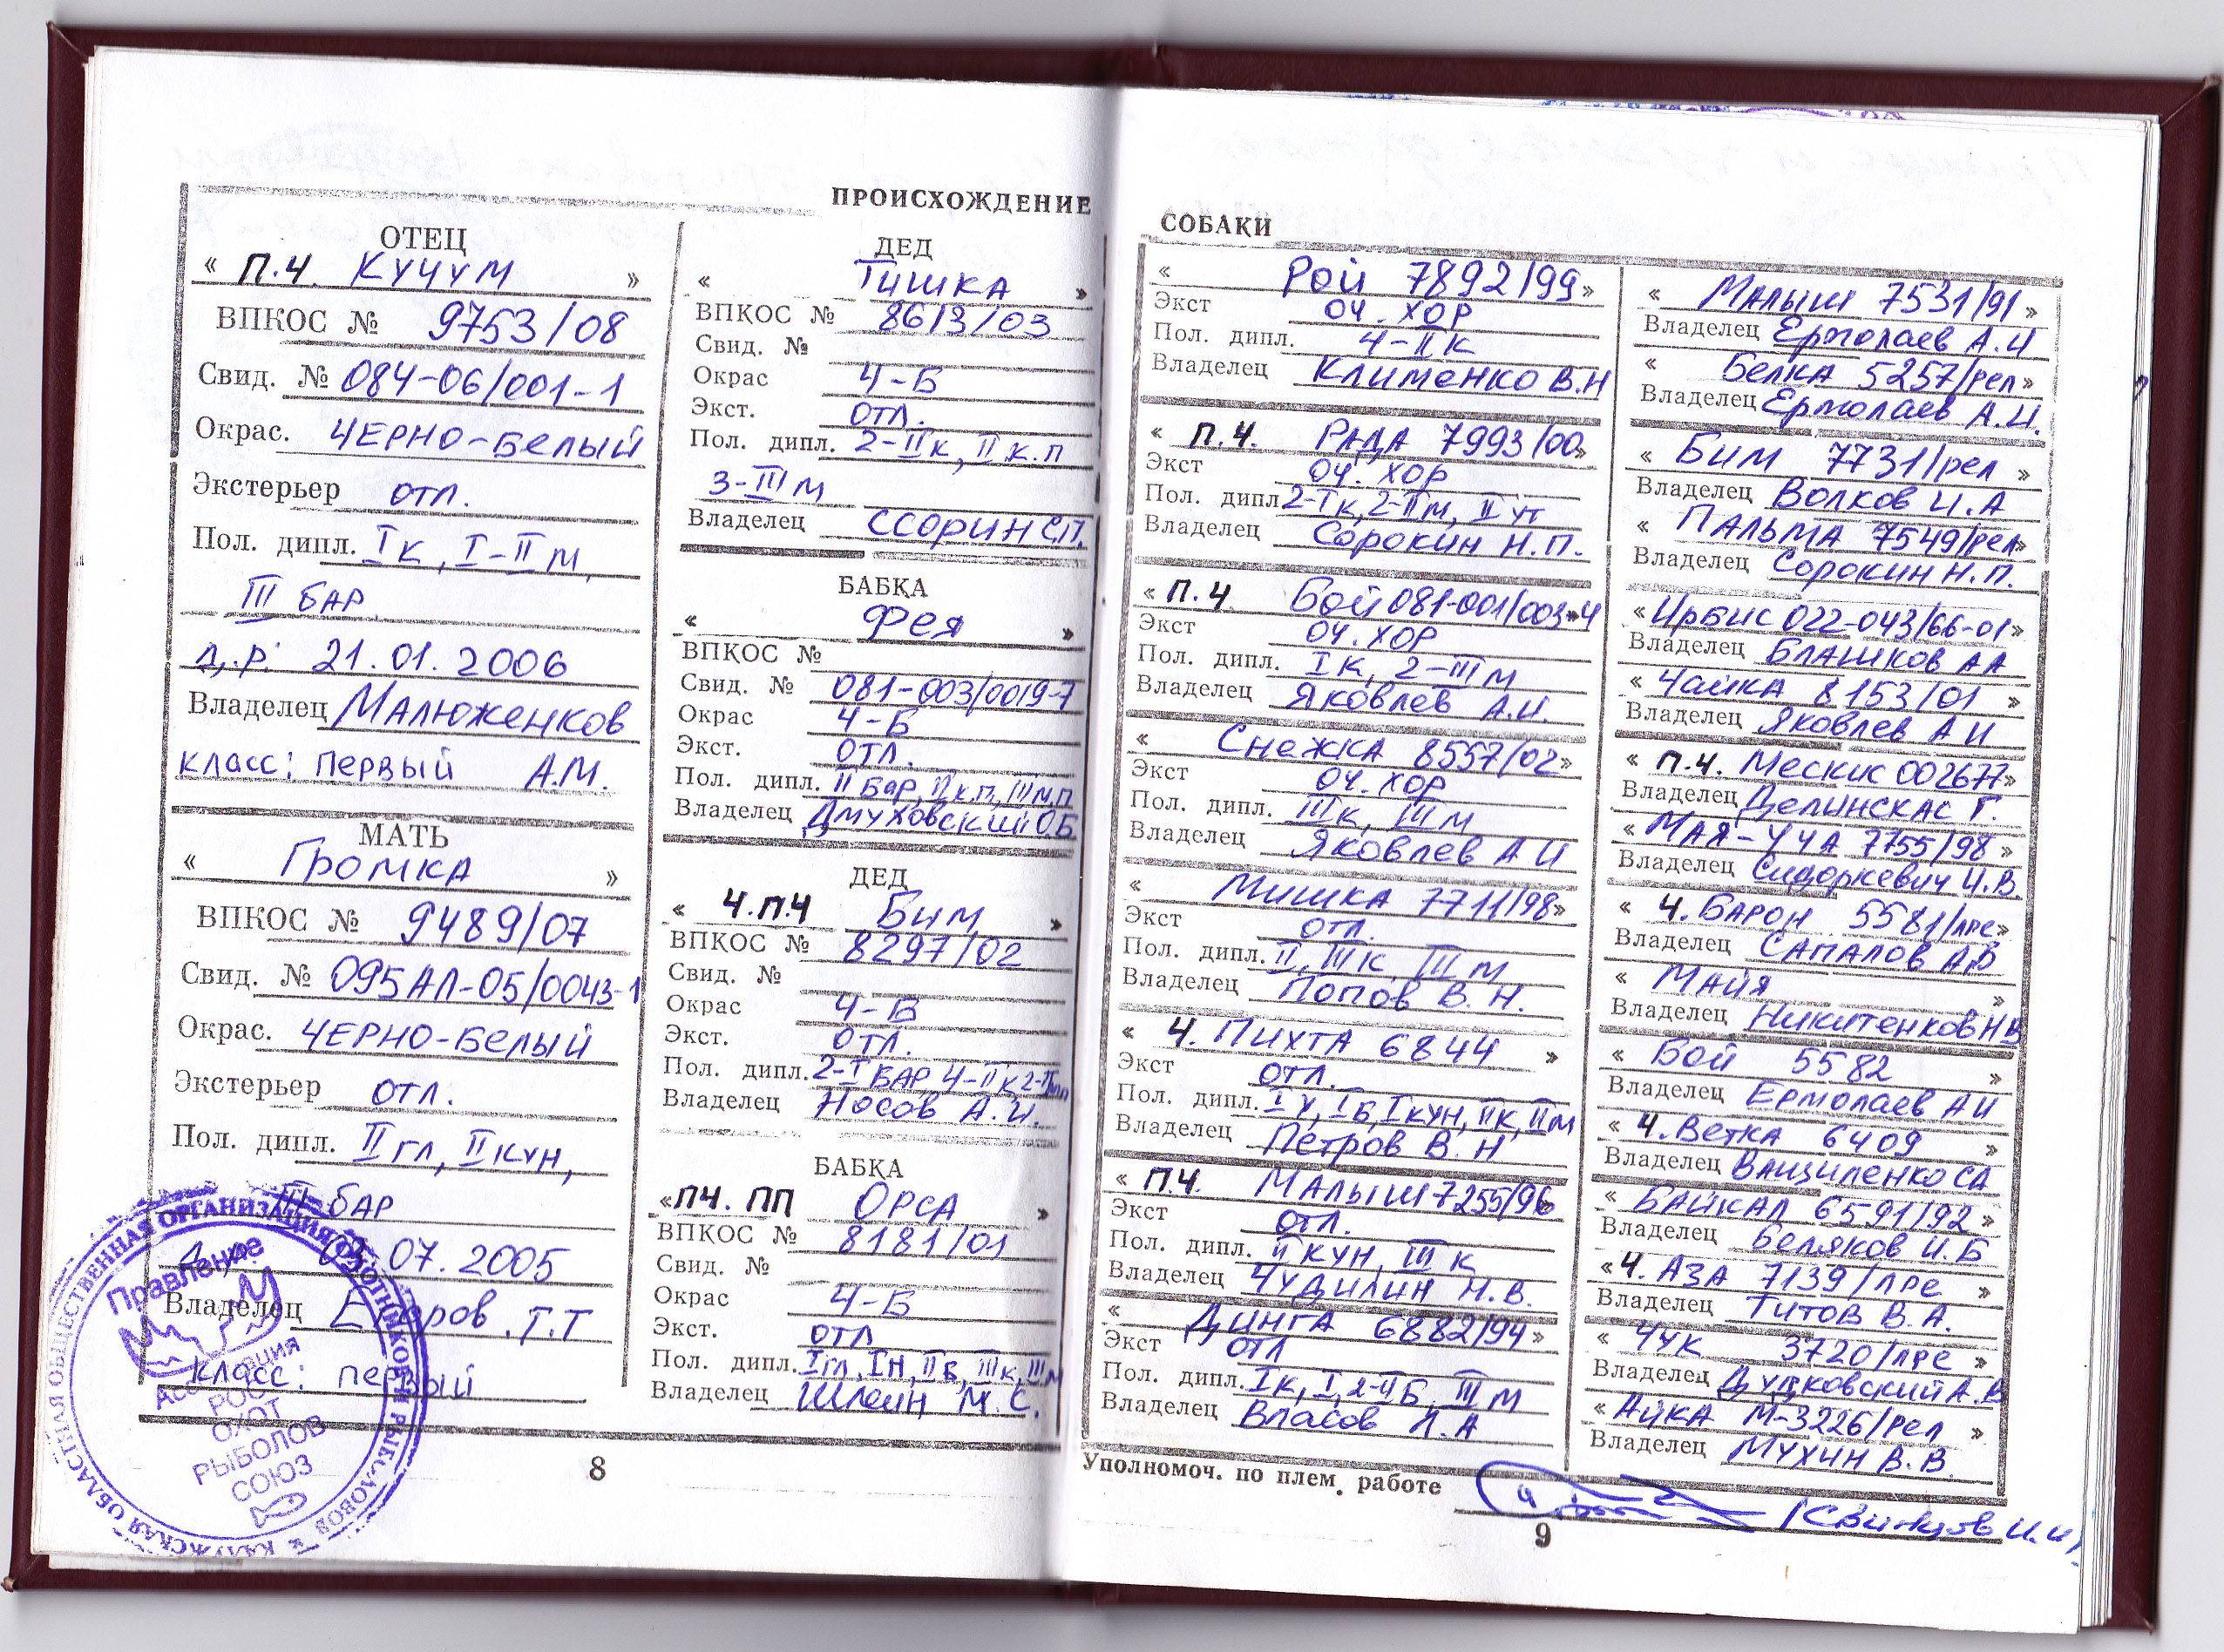 ПРОИСХОЖДЕНИЕ
ОТЕЦ
« П.Ч. КУЧУМ »
ВПКОС № 9753/08
Свид. № 084-06/001-1
Окрас. ЧЕРНО-БЕЛЫЙ
Экстерьер отл.
Пол. дипл. Iк, I-IIм,
III бар.
д.р: 21.01.2006
Владелец Малюженков
класс: первый А.М.
МАТЬ
« Громка »
ВПКОС № 9489/07
Свид. № 095АЛ-05/0043-1
Окрас. ЧЕРНО-БЕЛЫЙ
Экстерьер отл.
Пол. дипл. IIгл, IIкун,
III бар
07.2005
Владелец Егоров .Т.Т
класс: первый
ДЕД
« Тишка »
ВПКОС № 8613/03
Свид. №
Окрас Ч-Б
Экст. отл.
Пол. дипл. 2-IIк, IIк.п
3-IIIм
Владелец ССОРИН С.П.
БАБКА
« Фея »
ВПКОС №
Свид. № 081-003/0019-7
Окрас Ч-Б
Экст. отл.
Пол. дипл. II бар, IIк.п, IIIм.п
Владелец Дмуховский О.Б
ДЕД
« Ч.П.Ч Бим »
ВПКОС № 8297/02
Свид. №
Окрас Ч-Б
Экст. отл.
Пол. дипл. 2-I БАР 4-IIк
Владелец Носов А.И.
БАБКА
« ПЧ. ПП ОРСА »
ВПКОС № 8181/01
Свид. №
Окрас Ч-Б
Экст. отл
Пол. дипл. Iгл, IН, IIБ, IIIк, IIIм
Владелец Шлеин М.С.
8
Правление
Ассоциация
РОС
ОХОТ
РЫБОЛОВ
СОЮЗ
КАЛУЖСКАЯ ОБЛАСТНАЯ ОБЩЕСТВЕННАЯ ОРГАНИЗАЦИЯ ОХОТНИКОВ И РЫБОЛОВОВ
СОБАКИ
« Рой 7892/99 »
Экст оч. хор
Пол. дипл. 4-IIк
Владелец Клименко В.Н
« П.Ч. РАДА 7993/00 »
Экст оч. хор
Пол. дипл 2-Iк, 2-IIм, II ут
Владелец Сорокин Н.П.
« П.Ч. Бой 081-001/003-4 »
Экст оч. хор
Пол. дипл. Iк, 2-IIIм
Владелец Яковлев А.И.
« Снежка 8557/02 »
Экст оч. хор
Пол. дипл. IIIк, IIIм
Владелец Яковлев А И
« Мишка 7711/98 »
Экст отл.
Пол. дипл. II, IIIк, IIIм
Владелец Попов В. Н.
« Ч. ПИХТА 6844 »
Экст отл.
Пол. дипл. IУ, IБ, Iкун, IIк, IIм
Владелец Петров В. Н
« П.Ч. МАЛЫШ 7255/96 »
Экст отл.
Пол. дипл. IIкун, IIIк
Владелец Чудилин Н.В.
« Динга 6882/94 »
Экст отл
Пол. дипл. Iк, I, 2-IIБ, IIIм
Владелец Власов Л.А
« Малыш 7531/91 »
Владелец Ермолаев А.И
« Белка 5257/рел »
Владелец Ермолаев А.И.
« Бим 7731/рел »
Владелец Волков И.А
« ПАЛЬМА 7549/рел »
Владелец Сорокин Н.П.
« Ирбис 022-043/66-01 »
Владелец Блашков АА
« Чайка 8153/01 »
Владелец Яковлев А И
« П.Ч. Мескис 002677 »
Владелец Целинскас Г.
« МАЯ-УЧА 7755/98 »
Владелец Сидоркевич И.В.
« Ч. БАРОН 5581/лре »
Владелец САПАЛОВ А.В
« Майя »
Владелец Никитенков Н В
« Бой 5582 »
Владелец Ермолаев А И
« Ч. Ветка 6409 »
Владелец Ващиленко СА
« БАЙКАЛ 6591/92 »
Владелец Беляков И.Б
« Ч. АЗА 7139/лре »
Владелец Титов В.А.
« Чук 3720/лре »
Владелец Дудковский А.В
« Айка М-3226/рел »
Владелец Мухин В.В.
Уполномоч. по плем. работе /Свинцов И.И/
9